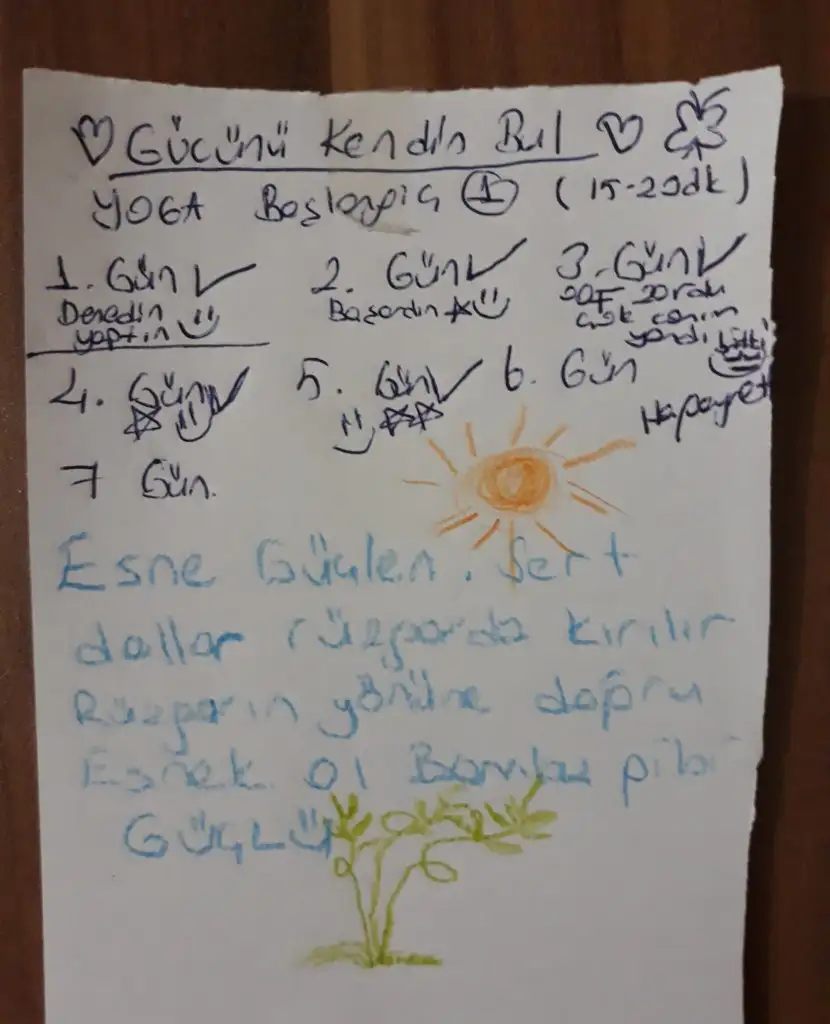 Gücünü Kendin Bul
YOGA Başlangıç 1 (15-20dk)
1. Gün 2. Gün 3. Gün
Denedin Başardın zordu
yaptın çok canın
yandı bitti
4. Gün 5. Gün 6. Gün
Hapayret
7 Gün.
Esne Güçlen. Sert
dallar rüzgarda kırılır
Rüzgarın yönüne doğru
Esnek ol Bambu gibi
GÜÇLÜ